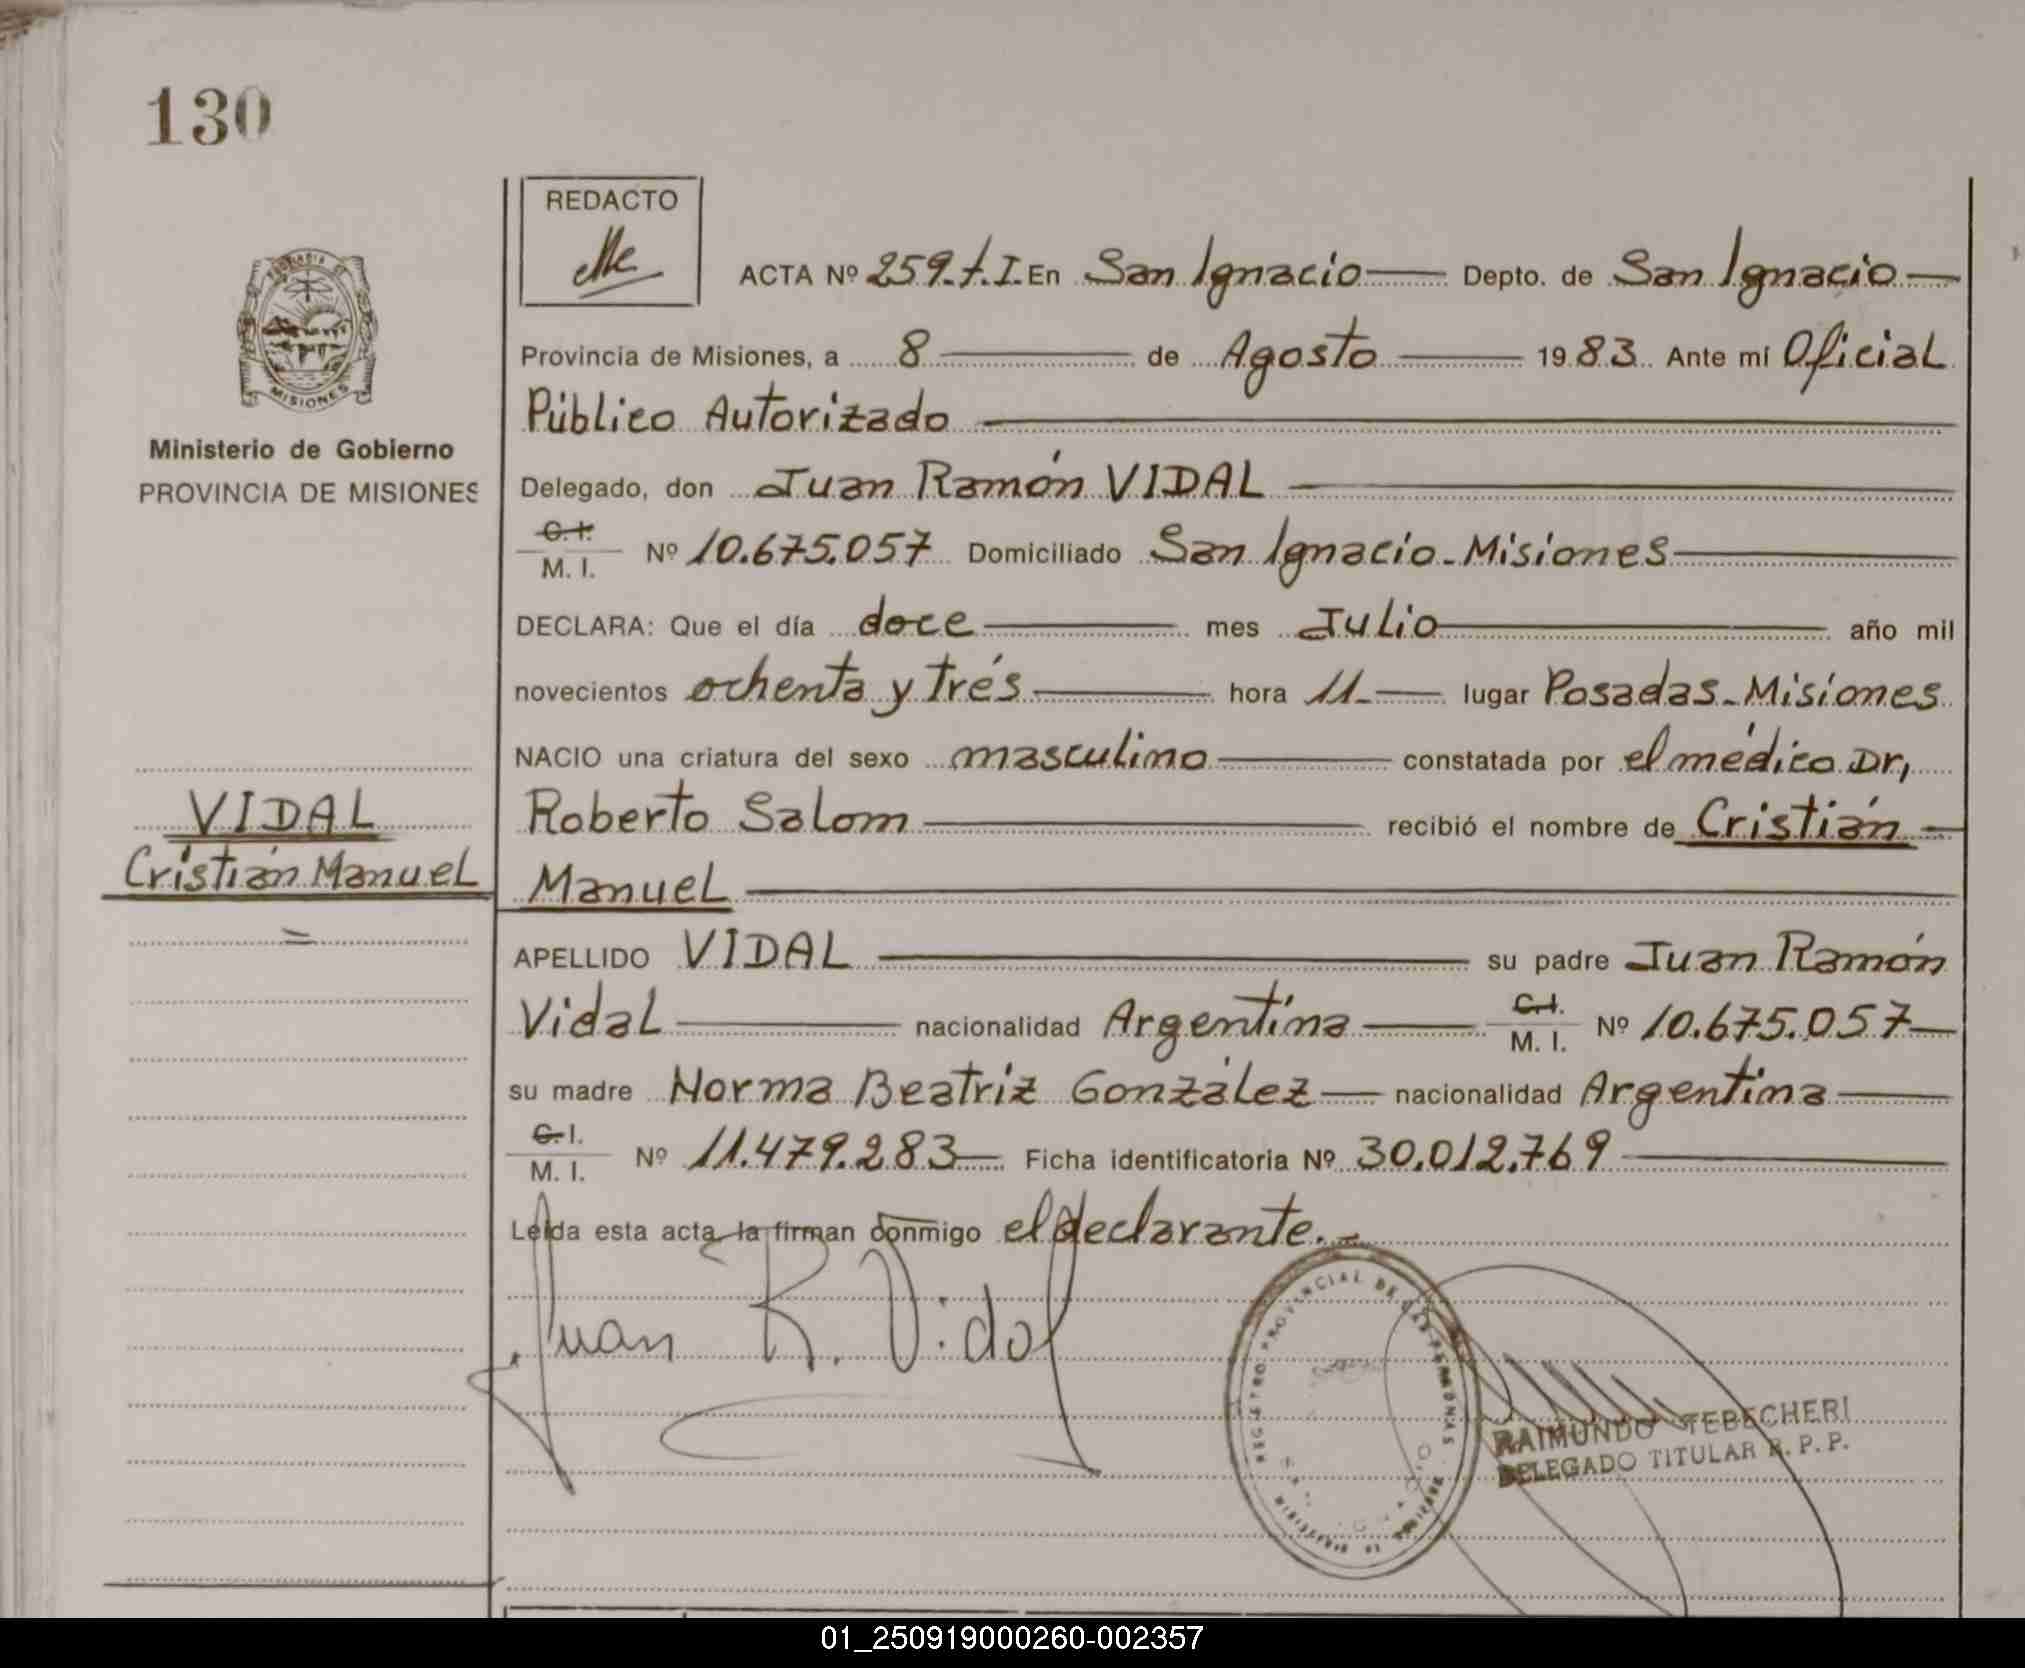 130
REDACTO
ACTA Nº 259.t.I. En San Ignacio Depto. de San Ignacio
Provincia de Misiones, a 8 de Agosto 1983. Ante mí Oficial
Público Autorizado
Ministerio de Gobierno
PROVINCIA DE MISIONES
MISIONES
Delegado, don Juan Ramón VIDAL
C. I.
M. I. Nº 10.675.057 Domiciliado San Ignacio - Misiones
DECLARA: Que el día doce mes Julio año mil
novecientos ochenta y trés hora 11 lugar Posadas - Misiones
NACIO una criatura del sexo masculino constatada por el médico Dr,
Roberto Salom recibió el nombre de Cristián
Manuel
VIDAL
Cristián Manuel
=
APELLIDO VIDAL su padre Juan Ramón
Vidal nacionalidad Argentina C. I. M. I. Nº 10.675.057
su madre Norma Beatriz González nacionalidad Argentina
C. I.
M. I. Nº 11.479.283 Ficha identificatoria Nº 30.012.769
Leída esta acta la firman conmigo el declarante.
Juan R. Vidal
REGISTRO PROVINCIAL DE LAS PERSONAS
RAIMUNDO TEBECHERI
DELEGADO TITULAR R. P. P.
01_250919000260-002357